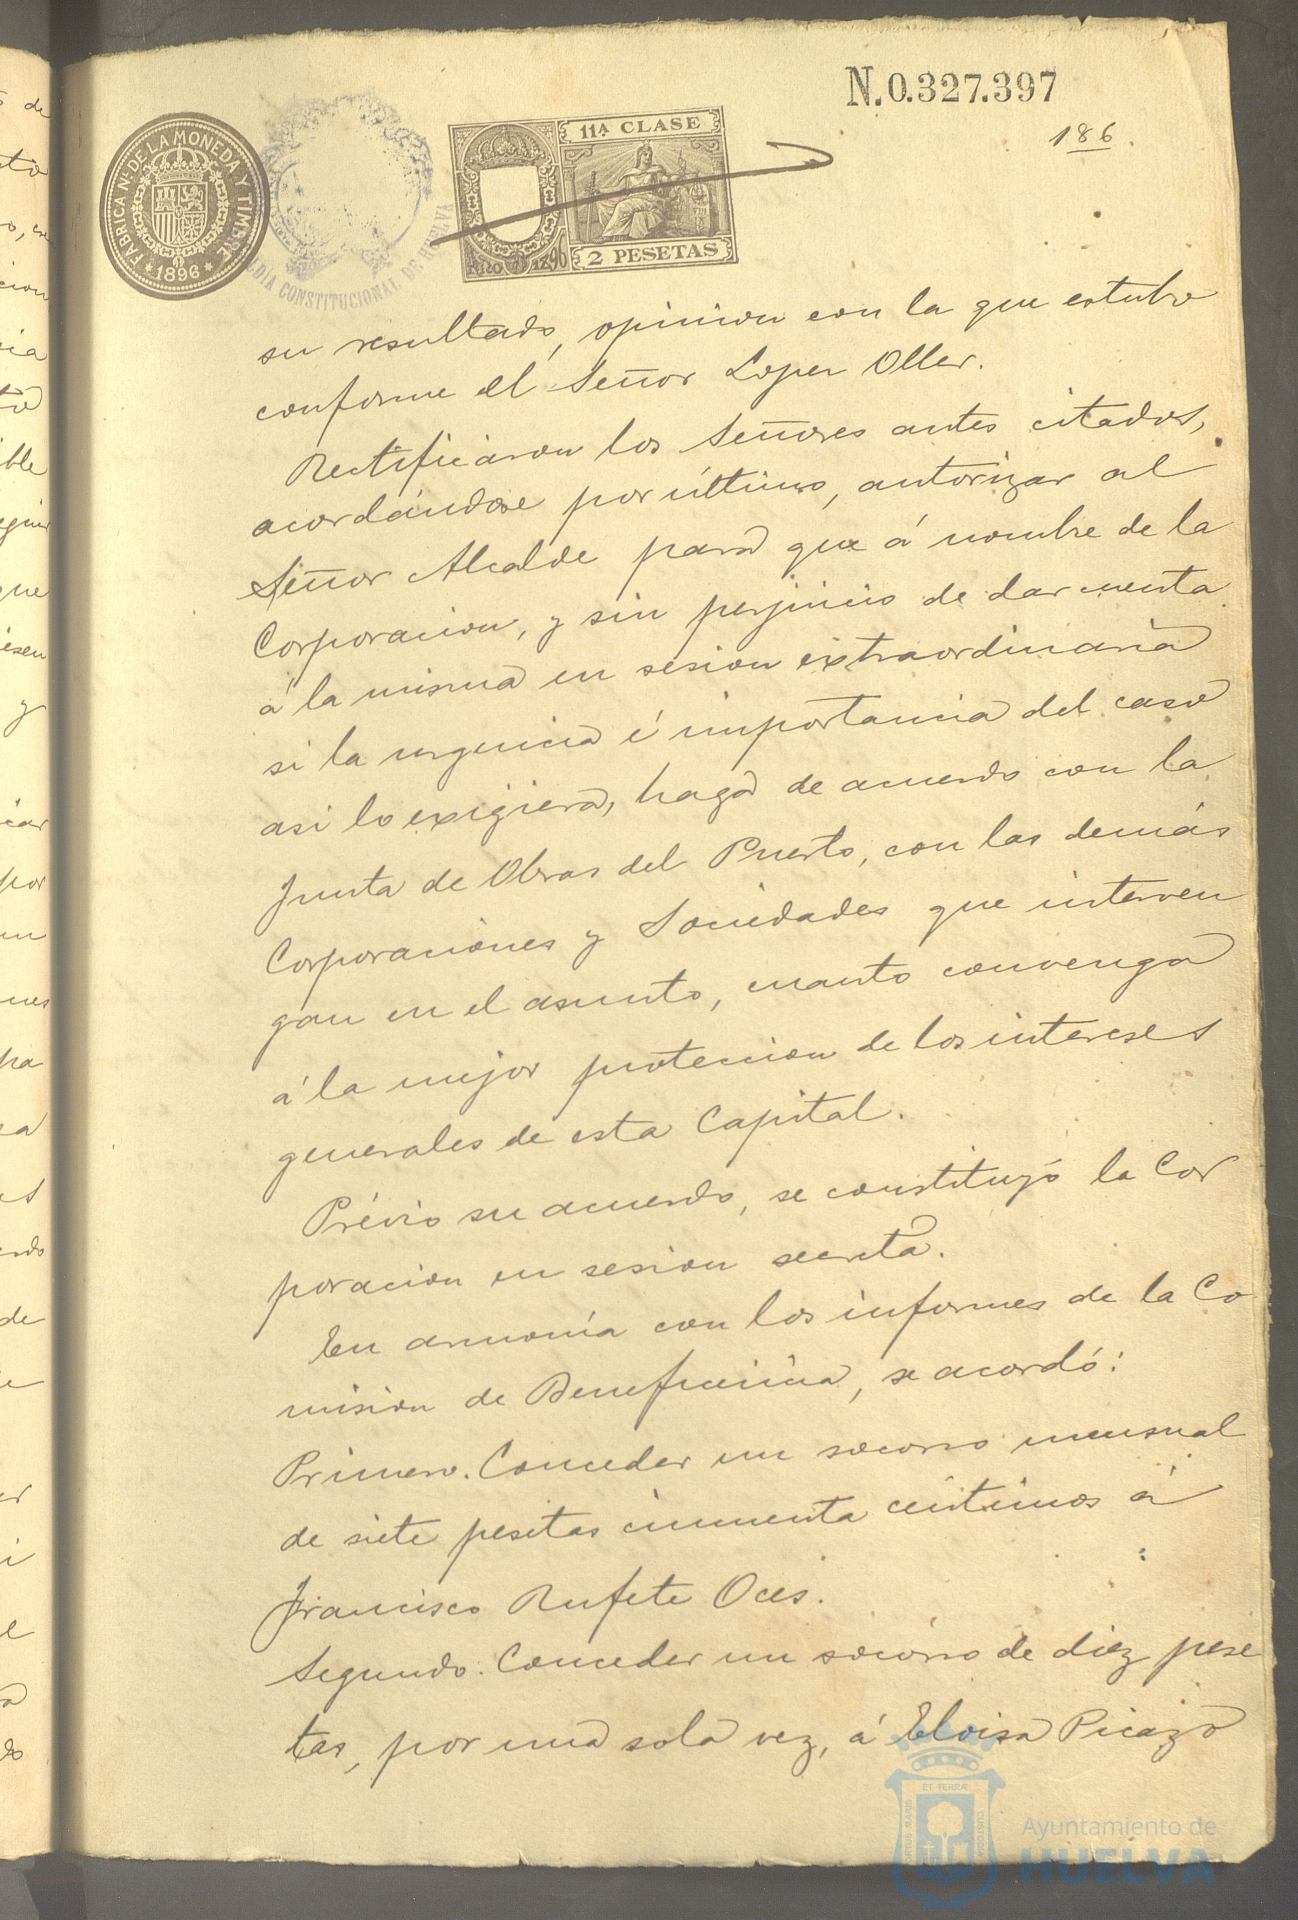 N.0.327.397
186.
FABRICA Nal DE LA MONEDA Y TIMBRE
* 1896 *
ALCALDIA CONSTITUCIONAL DE HUELVA
11ª CLASE
Año 1896
2 PESETAS
su resultado, opinion con la que estubo
conforme el Señor Lopez Oller.
Rectificaron los Señores antes citados,
acordándose por último, autorizar al
Señor Alcalde para que á nombre de la
Corporacion, y sin perjuicio de dar cuenta
á la misma en sesion extraordinaria
si la urgencia é importancia del caso
asi lo exigiera, haga de acuerdo con la
Junta de Obras del Puerto, con las demás
Corporaciones y Sociedades que interven
gan en el asunto, cuanto convenga
á la mejor proteccion de los intereses
generales de esta Capital.
Prévio su acuerdo, se constituyó la Cor
poracion en sesion secreta.
En armonía con los informes de la Co
mision de Beneficencia, se acordó:
Primero. Conceder un socorro mensual
de siete pesetas cincuenta céntimos á
Francisco Rufete Oces.
Segundo. Conceder un socorro de diez pese
tas, por una sola vez, á Eloisa Picazo
ET TERRÆ
PORTUS MARIS
CUSTODIA
Ayuntamiento de
HUELVA